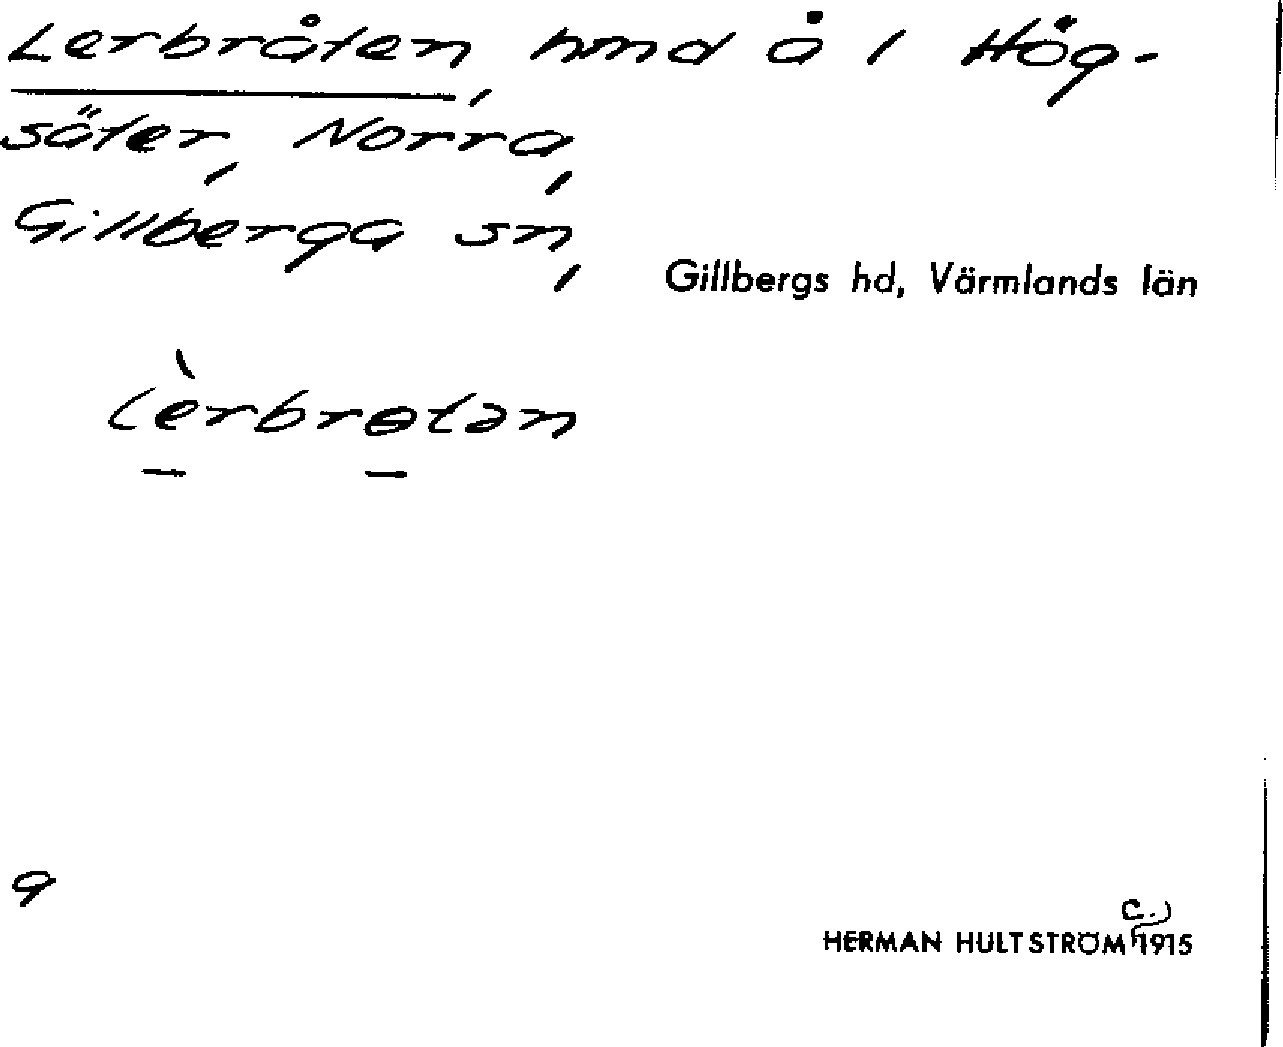 Lerbråten, hmd å i Hög-
säter, Norra,
Gillberga sn,
Gillbergs hd, Värmlands län
lèrbrɵtən
9
c.)
HERMAN HULTSTRÖM 1915